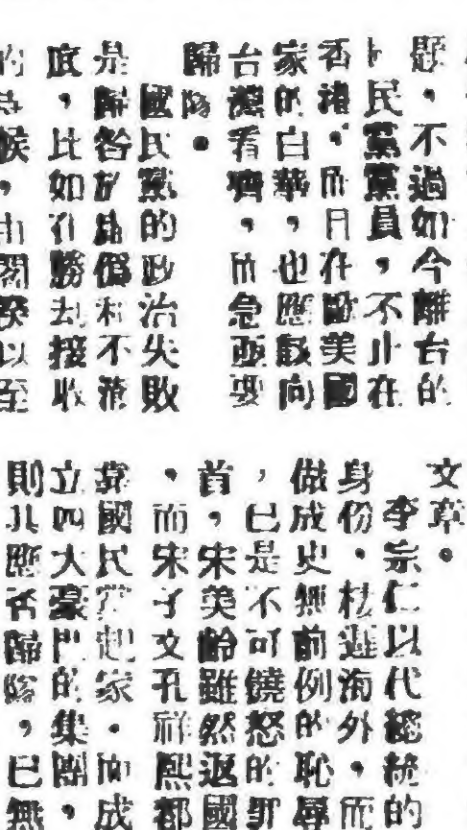 題，不過如今離台的
卜民黨黨員，不止在
香港，而且在歐美國
家的白華，也應該向
台灣看齊，而急亟要
歸隊。
國民黨的政治失敗
是歸咎於貪僞和不澈
底，比如在勝去接收
的時候，由閣揆以至
文章。
李宗仁以代總統的
身份，枯遲海外，而
做成史無前例的恥辱
，已是不可饒恕的罪
首，宋美齡雖然返國
，而宋子文孔祥熙都
靠國民黨起家，而成
立四大豪門的集團，
則其應否歸隊，已無